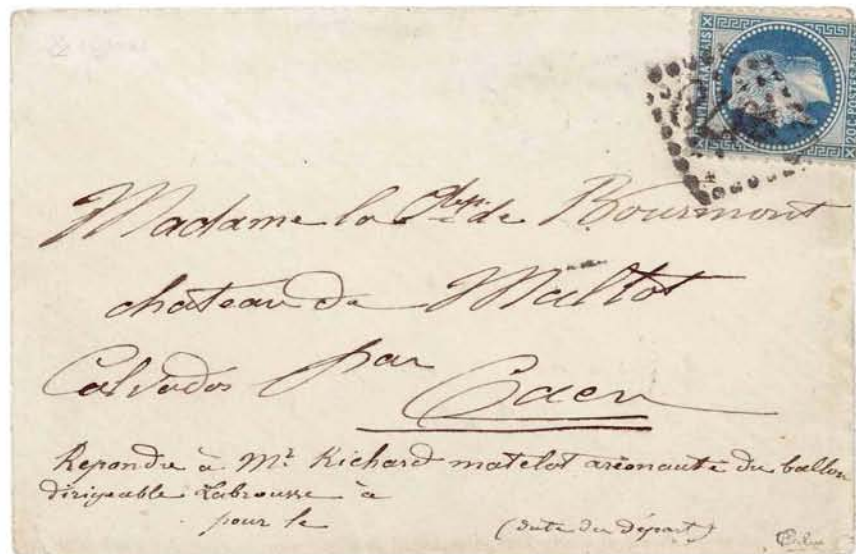 EMPIRE FRANÇAIS
20 C. POSTES 20 C.
Madame la Ctsse de Bourmont
chateau de Maltot
Calvados par
Caen
Repondre à Mr Richard matelot aréonaute du ballon
dirigeable Labrousse à
pour le (date du départ)